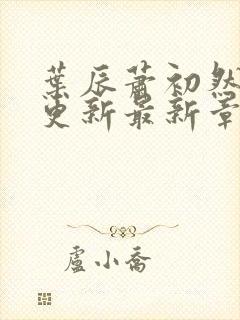 葉辰蕭初然
更新最新章
盧小喬